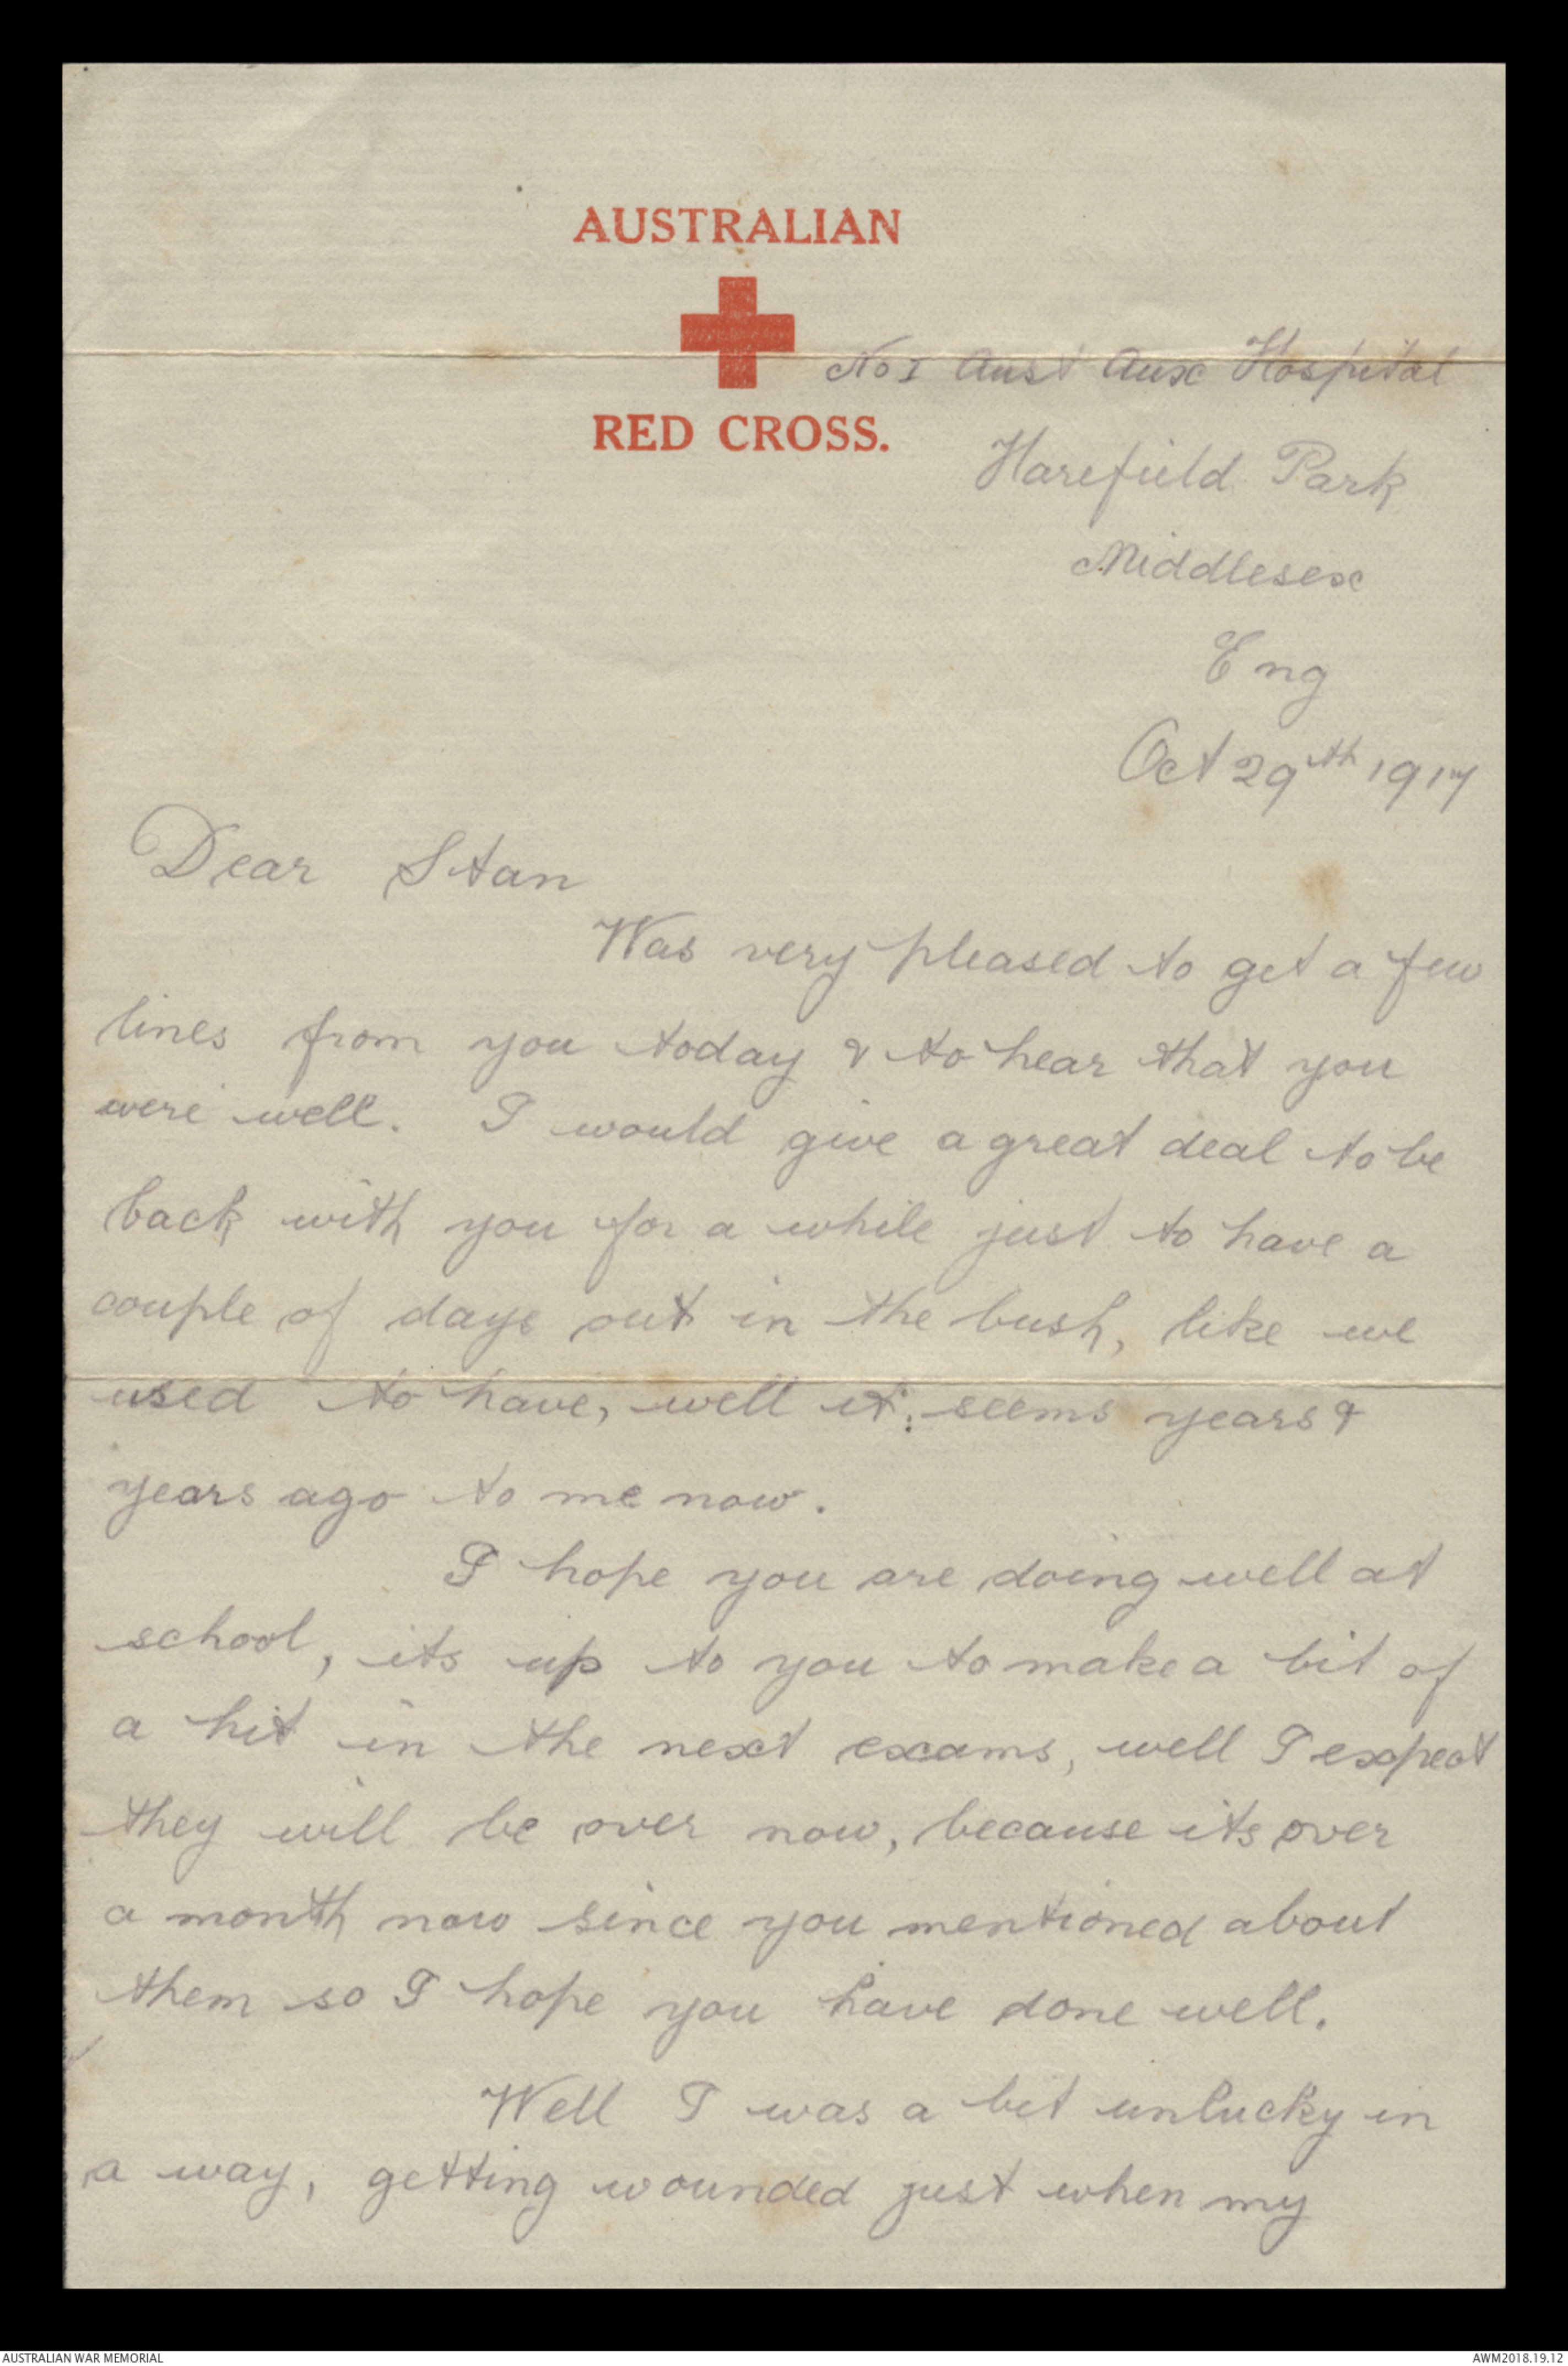 AUSTRALIAN
RED CROSS.
No I Aust Aux Hospital
Harefield Park
Middlesex
Eng
Oct 29th 1917
Dear Stan
Was very pleased to get a few
lines from you today & to hear that you
were well. I would give a great deal to be
back with you for a while just to have a
couple of days out in the bush, like we
used to have, well it seems years &
years ago to me now.
I hope you are doing well at
school, its up to you to make a bit of
a hit in the next exams, well I expect
they will be over now, because its over
a month now since you mentioned about
them so I hope you have done well.
Well I was a bit unlucky in
a way, getting wounded just when my
AUSTRALIAN WAR MEMORIAL
AWM2018.19.12